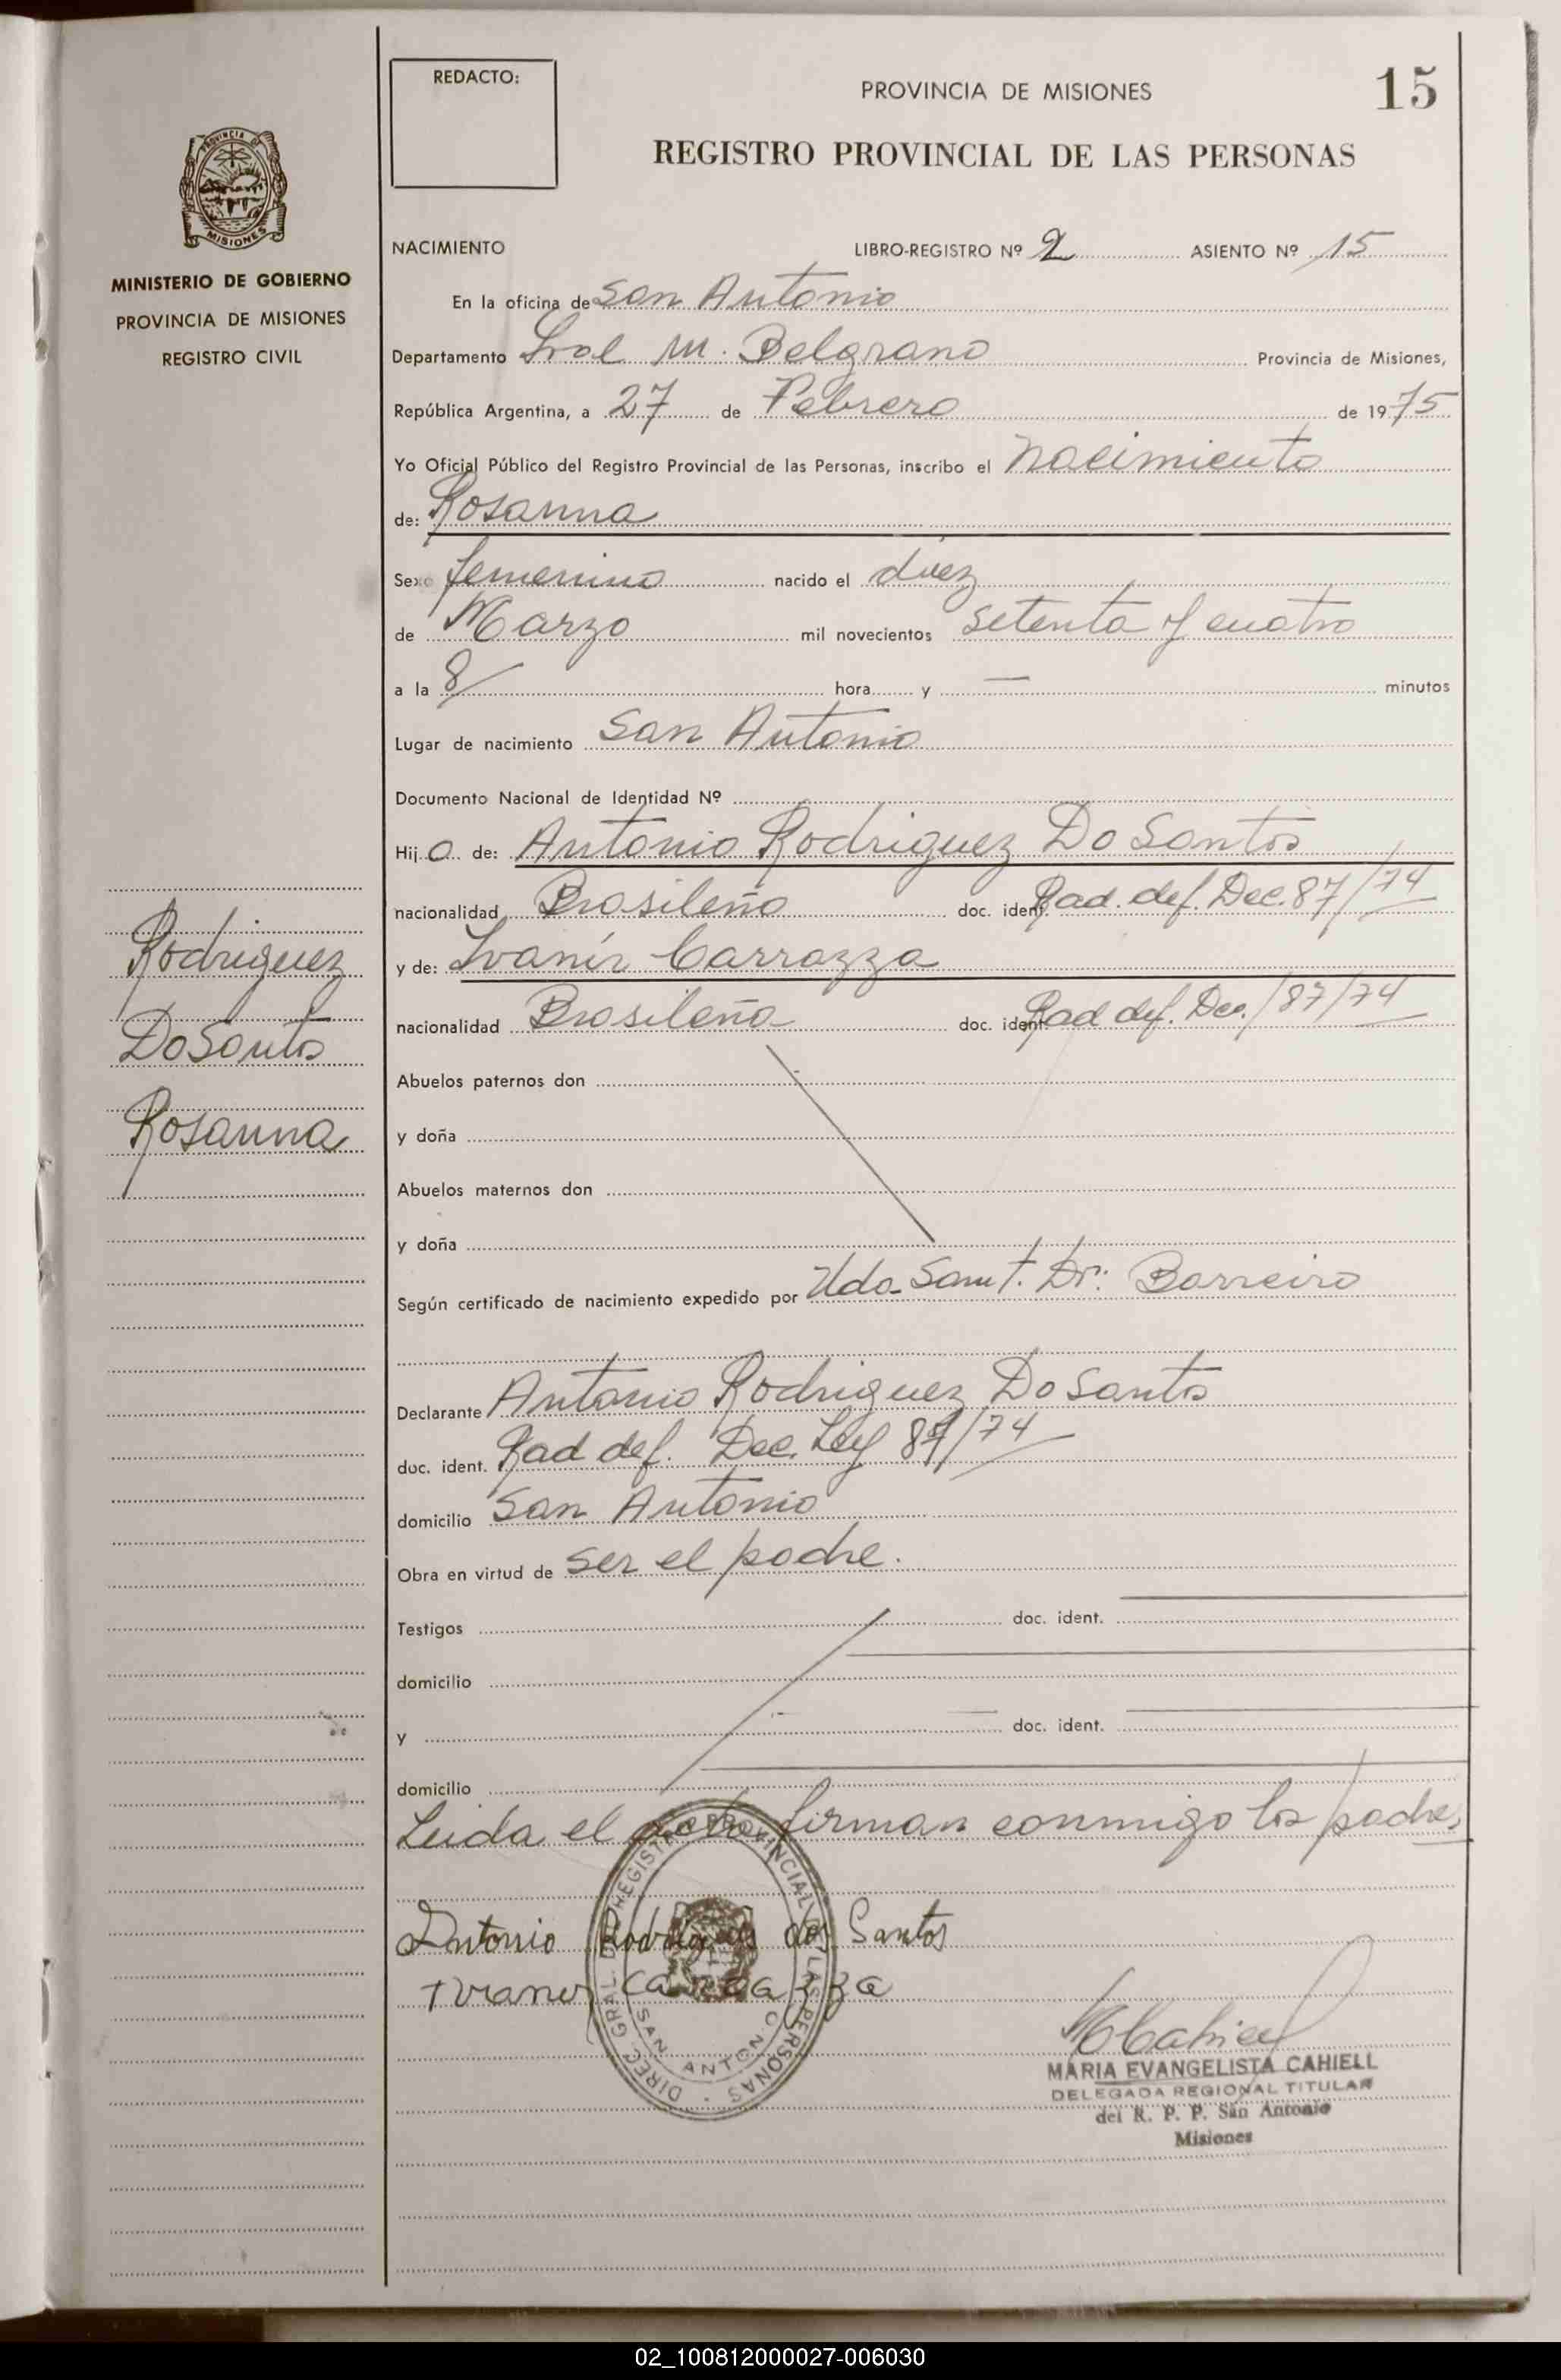 REDACTO:
PROVINCIA DE MISIONES
15
REGISTRO PROVINCIAL DE LAS PERSONAS
PROVINCIA DE
MISIONES
MINISTERIO DE GOBIERNO
PROVINCIA DE MISIONES
REGISTRO CIVIL
NACIMIENTO LIBRO-REGISTRO Nº 2 ASIENTO Nº 15
En la oficina de San Antonio
Departamento Gral M. Belgrano Provincia de Misiones,
República Argentina, a 27 de Febrero de 1975
Yo Oficial Público del Registro Provincial de las Personas, inscribo el nacimiento
de: Rosanna
Sexo femenino nacido el diez
de Marzo mil novecientos setenta y cuatro
a la 8/ hora y — minutos
Lugar de nacimiento San Antonio
Documento Nacional de Identidad Nº
Hij a de: Antonio Rodriguez Do Santos
nacionalidad Brasileño doc. ident. Rad. def. Dec. 87/74
y de: Ivanir Carrazza
nacionalidad Brasileña doc. ident. Rad def. Dec./87/74
Abuelos paternos don
y doña
Abuelos maternos don
y doña
Según certificado de nacimiento expedido por Uda. Sanit. Dr: Barreiro
Declarante Antonio Rodriguez Do Santos
doc. ident. Rad def. Dec. Ley 87/74
domicilio San Antonio
Obra en virtud de ser el padre.
Testigos doc. ident.
domicilio
y doc. ident.
domicilio
Leida el acta firman conmigo los padres
Rodriguez
DoSantos
Rosanna
Antonio Rodrigues dos Santos
Ivanir Carrazza
DIREC. GRAL. DEL REGISTRO PROVINCIAL DE LAS PERSONAS
SAN ANTONIO
MARIA EVANGELISTA CAHIELL
DELEGADA REGIONAL TITULAR
del R. P. P. San Antonio
Misiones
02_100812000027-006030